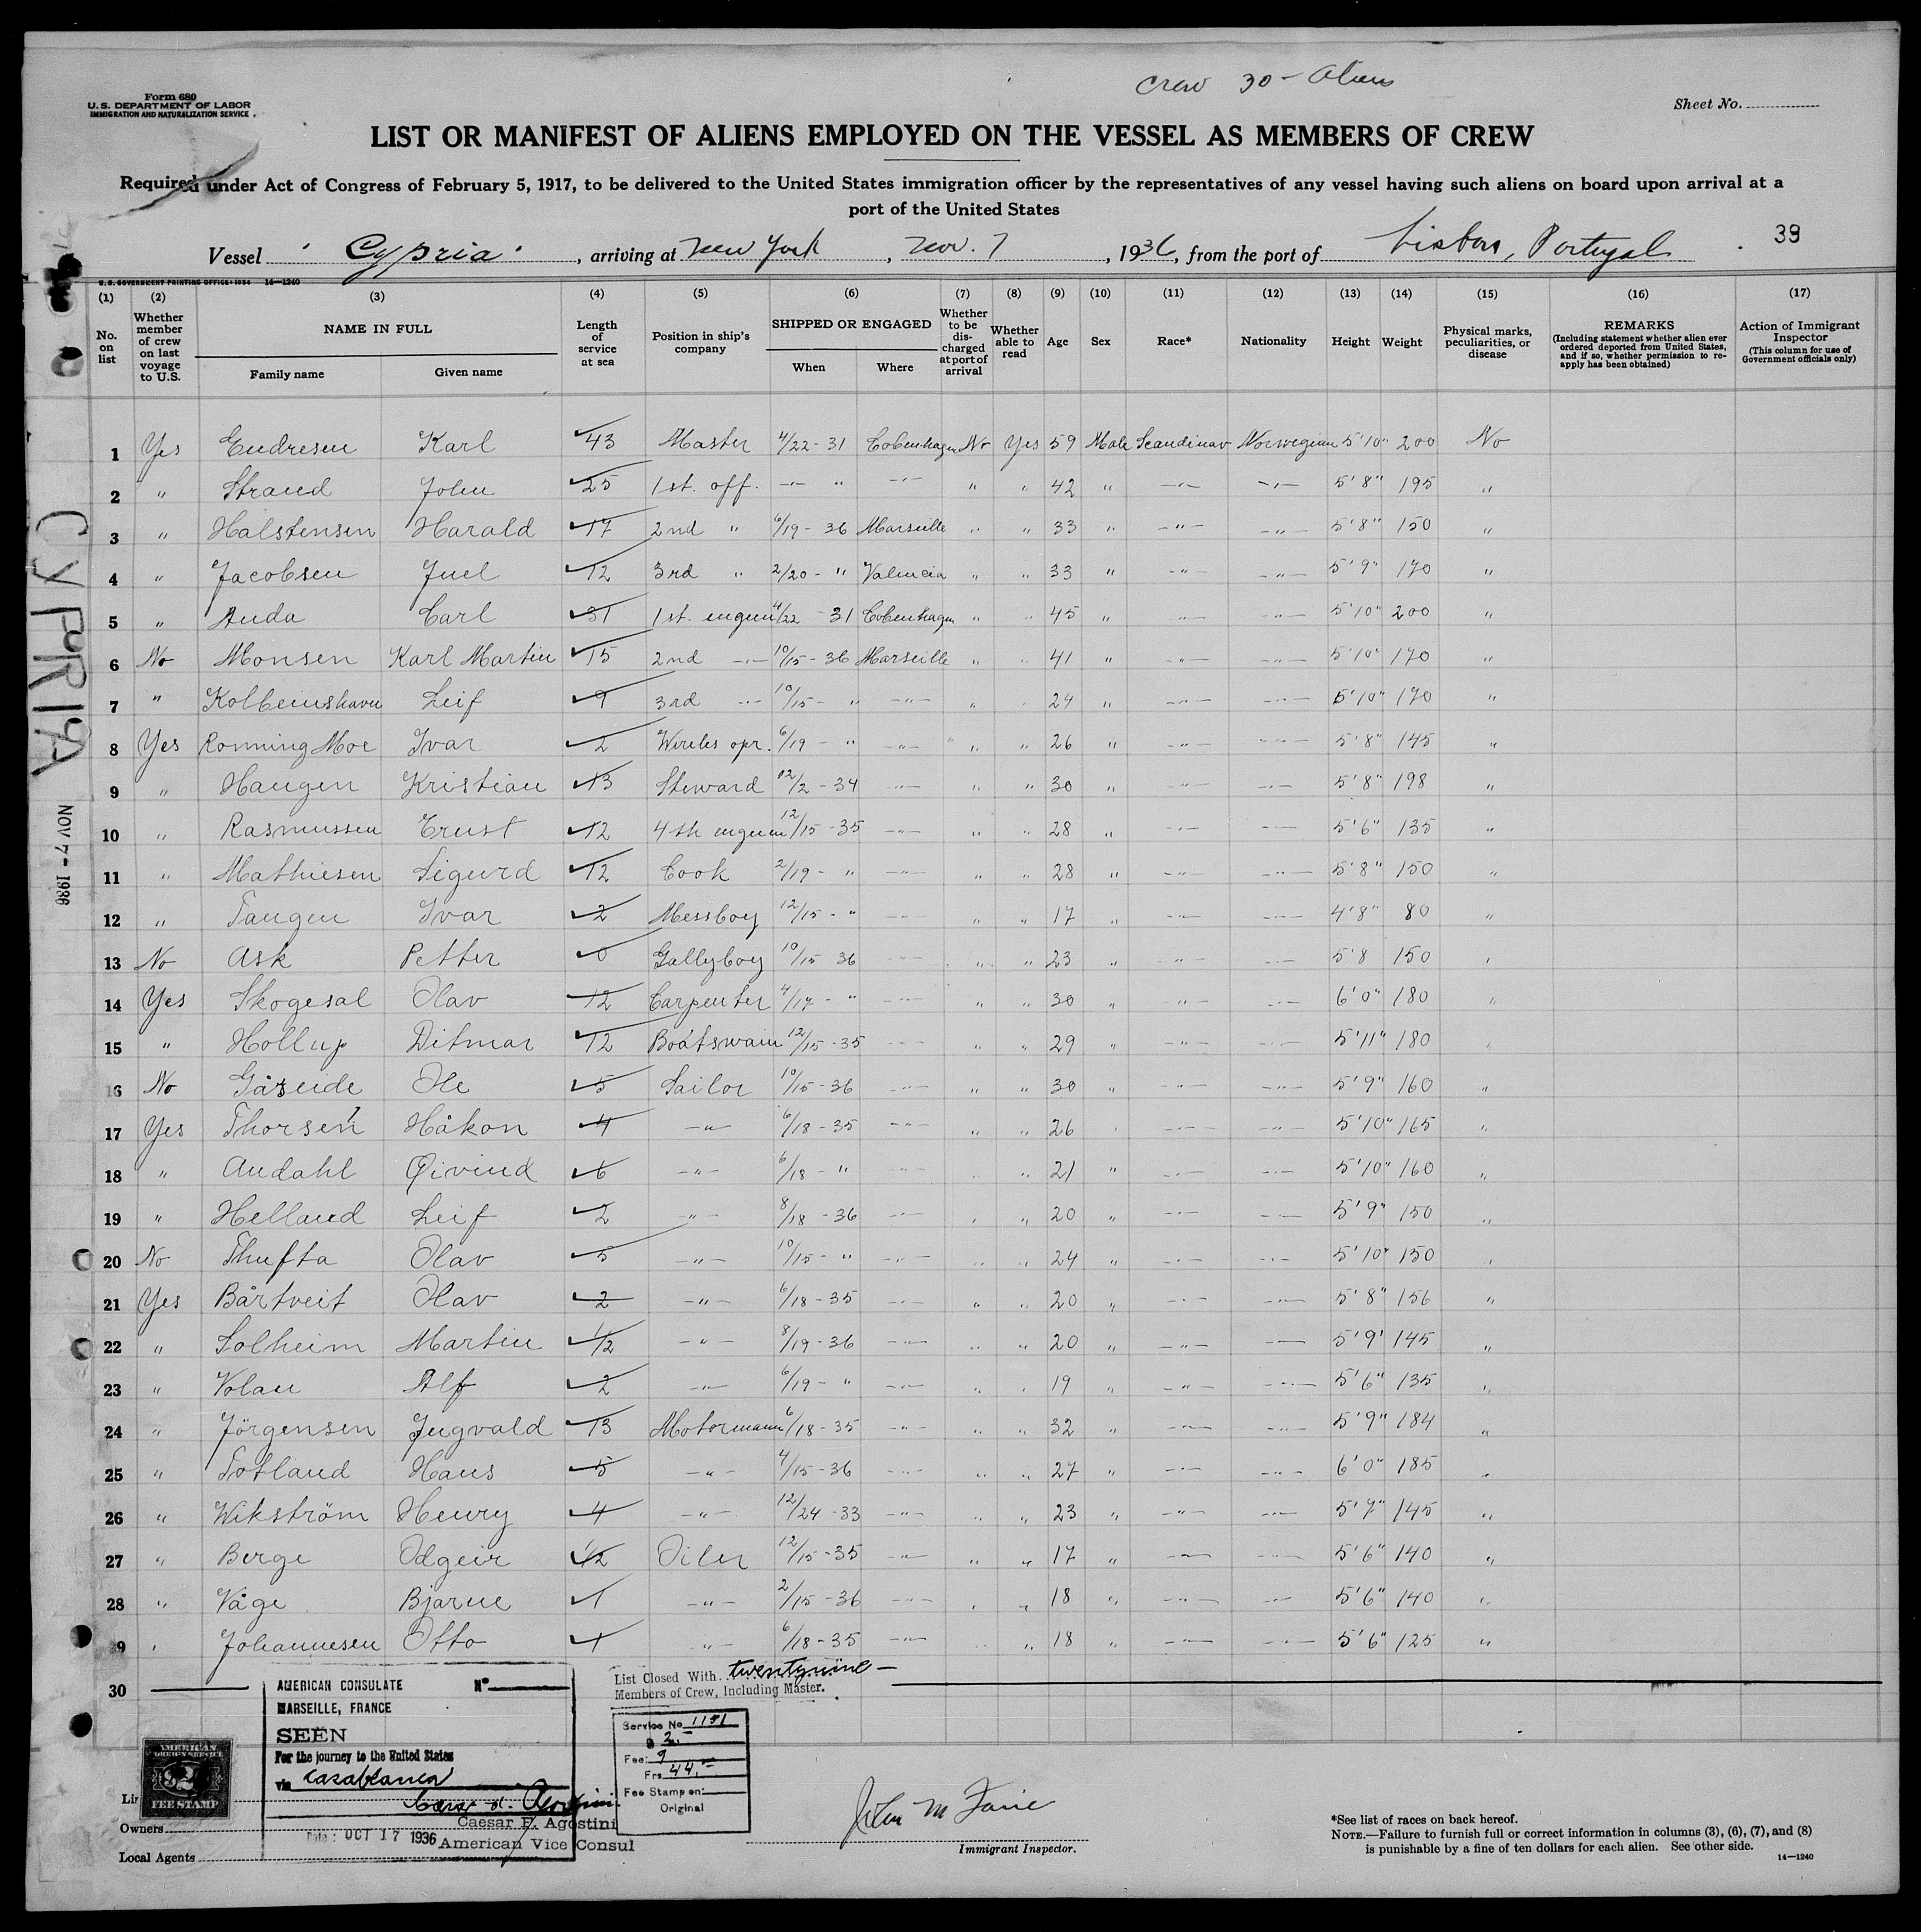 Crew 30 - Aliens
Form 680
U. S. DEPARTMENT OF LABOR
IMMIGRATION AND NATURALIZATION SERVICE
Sheet No.
LIST OR MANIFEST OF ALIENS EMPLOYED ON THE VESSEL AS MEMBERS OF CREW
Required under Act of Congress of February 5, 1917, to be delivered to the United States immigration officer by the representatives of any vessel having such aliens on board upon arrival at a
port of the United States
Vessel "Cypria", arriving at New York, Nov. 7, 1936, from the port of Lisbon, Portugal. 39
U. S. GOVERNMENT PRINTING OFFICE: 1934 14—1240
(1) (2) (3) (4) (5) (6) (7) (8) (9) (10) (11) (12) (13) (14) (15) (16) (17)
No. on list
Whether member of crew on last voyage to U.S.
NAME IN FULL
Family name
Given name
Length of service at sea
Position in ship's company
SHIPPED OR ENGAGED
When
Where
Whether to be discharged at port of arrival
Whether able to read
Age
Sex
Race*
Nationality
Height
Weight
Physical marks, peculiarities, or disease
REMARKS
(Including statement whether alien ever ordered deported from United States, and if so, whether permission to reapply has been obtained)
Action of Immigrant Inspector
(This column for use of Government officials only)
1 Yes Endresen Karl 43 Master 4/22 - 31 Cobenhagen No Yes 59 Male Scandinav Norwegian 5'10" 200 No
2 " Strand John 25 1st. off. -"- " -"- " " 42 " -"- -"- 5'8" 195 "
3 " Halstensen Harald 17 2nd " 6/19 - 36 Marseille " " 33 " -"- -"- 5'8" 150 "
4 " Jacobsen Juel 12 3rd " 2/20 - " Valencia " " 33 " -"- -"- 5'9" 170 "
5 " Anda Carl 31 1st. engen 4/22 - 31 Cobenhagen " " 45 " -"- -"- 5'10" 200 "
6 No Monsen Karl Martin 15 2nd -"- 10/15 - 36 Marseille " " 41 " -"- -"- 5'10" 170 "
7 " Kolbeinshavn Leif 9 3rd -"- 10/15 - " -"- " " 24 " -"- -"- 5'10" 170 "
8 Yes Ronning Moe Ivar 2 Wireles opr. 6/19 - " -"- " " 26 " -"- -"- 5'8" 145 "
9 " Haugen Kristian 13 Steward 12/2 - 34 -"- " " 30 " -"- -"- 5'8" 198 "
10 " Rasmussen Ernst 12 4th engen 12/15 - 35 -"- " " 28 " -"- -"- 5'6" 135 "
11 " Mathiesen Sigurd 12 Cook 2/19 - " -"- " " 28 " -"- -"- 5'8" 150 "
12 " Tangen Ivar 2 Messboy 12/15 - " -"- " " 17 " -"- -"- 4'8" 80 "
13 No Ask Petter 0 Gallyboy 10/15 36 -"- " " 23 " -"- -"- 5'8 150 "
14 Yes Skogesal Olav 12 Carpenter 4/17 - " -"- " " 30 " -"- -"- 6'0" 180 "
15 " Hollup Ditmar 12 Boatswain 12/15 - 35 -"- " " 29 " -"- -"- 5'11" 180 "
16 No Gåseide Ole 5 Sailor 10/15 - 36 -"- " " 30 " -"- -"- 5'9" 160 "
17 Yes Thorsen Håkon 4 -"- 6/18 - 35 -"- " " 26 " -"- -"- 5'10" 165 "
18 " Audahl Øivind 6 -"- 6/18 - " -"- " " 21 " -"- -"- 5'10" 160 "
19 " Helland Leif 2 -"- 8/18 - 36 -"- " " 20 " -"- -"- 5'9" 150 "
20 No Thufta Olav 5 -"- 10/15 - " -"- " " 24 " -"- -"- 5'10" 150 "
21 Yes Bårtveit Olav 2 -"- 6/18 - 35 -"- " " 20 " -"- -"- 5'8" 156 "
22 " Solheim Martin 1/2 -"- 8/19 - 36 -"- " " 20 " -"- -"- 5'9' 145 "
23 " Volan Alf 2 -"- 6/19 - " -"- " " 19 " -"- -"- 5'6" 135 "
24 " Jörgensen Ingvald 13 Motormann 6/18 - 35 -"- " " 32 " -"- -"- 5'9" 184 "
25 " Totland Hans 5 -"- 4/15 - 36 -"- " " 27 " -"- -"- 6'0" 185 "
26 " Wikström Henry 4 -"- 12/24 - 33 -"- " " 23 " -"- -"- 5'7" 145 "
27 " Berge Odgeir 1/2 Oiler 12/15 - 35 -"- " " 17 " -"- -"- 5'6" 140 "
28 " Våge Bjarne 1 -"- 2/15 - 36 -"- " " 18 " -"- -"- 5'6" 140 "
29 " Johannesen Otto 1 -"- 6/18 - 35 -"- " " 18 " -"- -"- 5'6" 125 "
30
CYPRIA
NOV 7 - 1936
List Closed With twentynine —
Members of Crew, Including Master.
AMERICAN CONSULATE Nº
MARSEILLE, FRANCE
SEEN
For the journey to the United States
via Casablanca
Caesar P. Agostini
American Vice Consul
Date: OCT 17 1936
AMERICAN
FOREIGN SERVICE
$2
FEE STAMP
Service No 1151
$ 2.-
Fee: 9
Frs 44.-
Fee Stamp on:
Original
Owners
Local Agents
Immigrant Inspector.
*See list of races on back hereof.
NOTE.—Failure to furnish full or correct information in columns (3), (6), (7), and (8)
is punishable by a fine of ten dollars for each alien. See other side.
14—1240